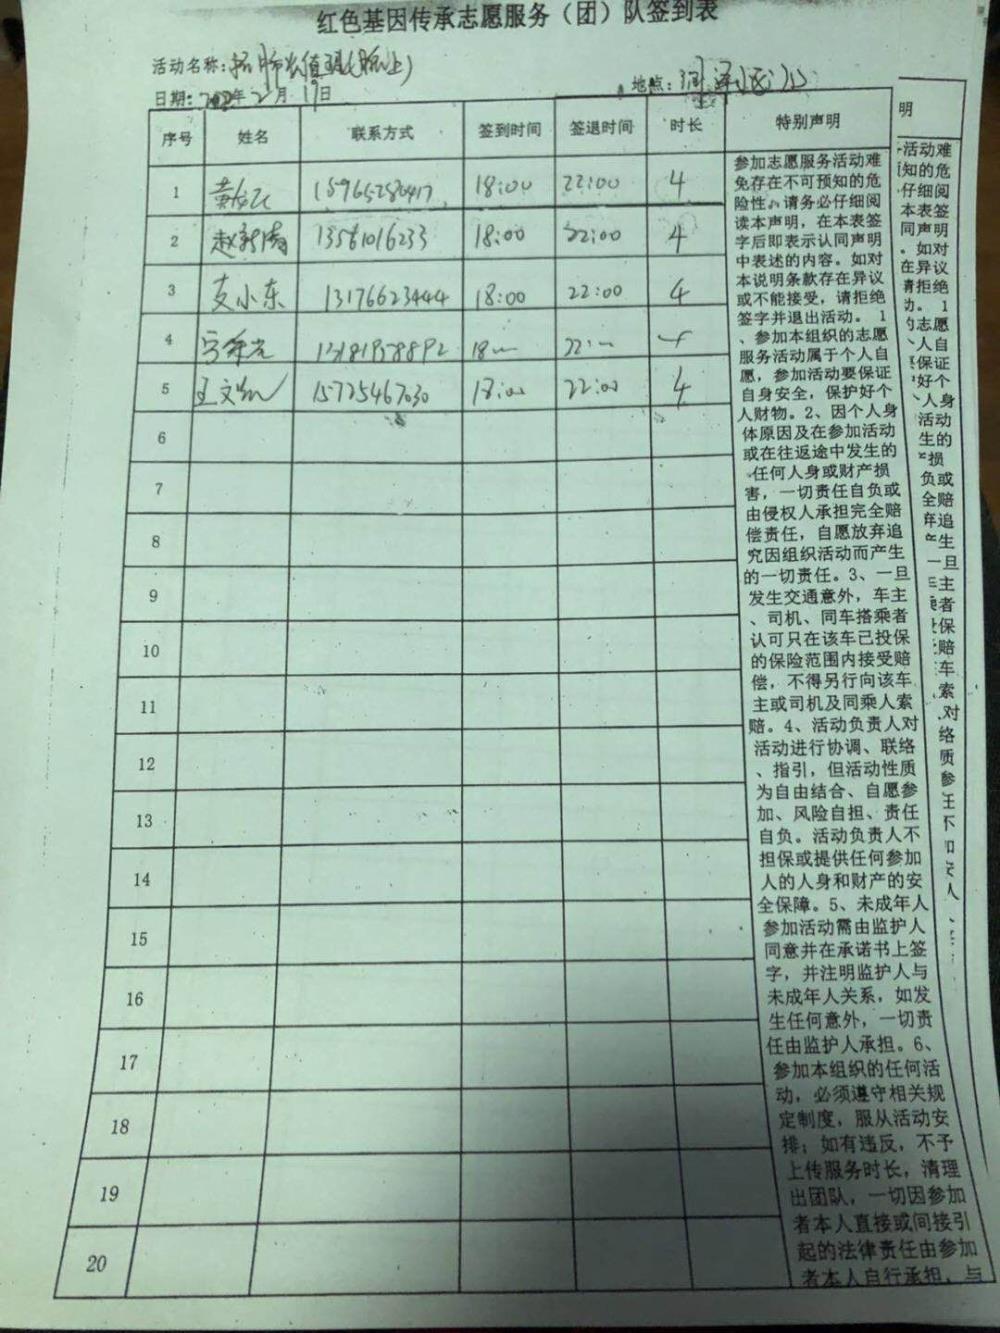 红色基因传承志愿服务（团）队签到表
活动名称：
日期： 年2月19日
地点：
序号 姓名 联系方式 签到时间 签退时间 时长 特别声明
1 15965280417 18:00 22:00 4
2 13561016233 18:00 22:00 4
3 支小东 13176623444 18:00 22:00 4
4 13181958892 18 22
5 15725467030 18:00 22:00 4
6
7
8
9
10
11
12
13
14
15
16
17
18
19
20
参加志愿服务活动难
免存在不可预知的危
险性。请务必仔细阅
读本声明，在本表签
字后即表示认同声明
中表述的内容。如对
本说明条款存在异议
或不能接受，请拒绝
签字并退出活动。 1
、参加本组织的志愿
服务活动属于个人自
愿，参加活动要保证
自身安全，保护好个
人财物。2、因个人身
体原因及在参加活动
或在往返途中发生的
任何人身或财产损
害，一切责任自负或
由侵权人承担完全赔
偿责任，自愿放弃追
究因组织活动而产生
的一切责任。3、一旦
发生交通意外，车主
、司机、同车搭乘者
认可只在该车已投保
的保险范围内接受赔
偿，不得另行向该车
主或司机及同乘人索
赔。4、活动负责人对
活动进行协调、联络
、指引，但活动性质
为自由结合、自愿参
加、风险自担、责任
自负。活动负责人不
担保或提供任何参加
人的人身和财产的安
全保障。5、未成年人
参加活动需由监护人
同意并在承诺书上签
字，并注明监护人与
未成年人关系，如发
生任何意外，一切责
任由监护人承担。6、
参加本组织的任何活
动，必须遵守相关规
定制度，服从活动安
排；如有违反，不予
上传服务时长，清理
出团队，一切因参加
者本人直接或间接引
起的法律责任由参加
者本人自行承担，与